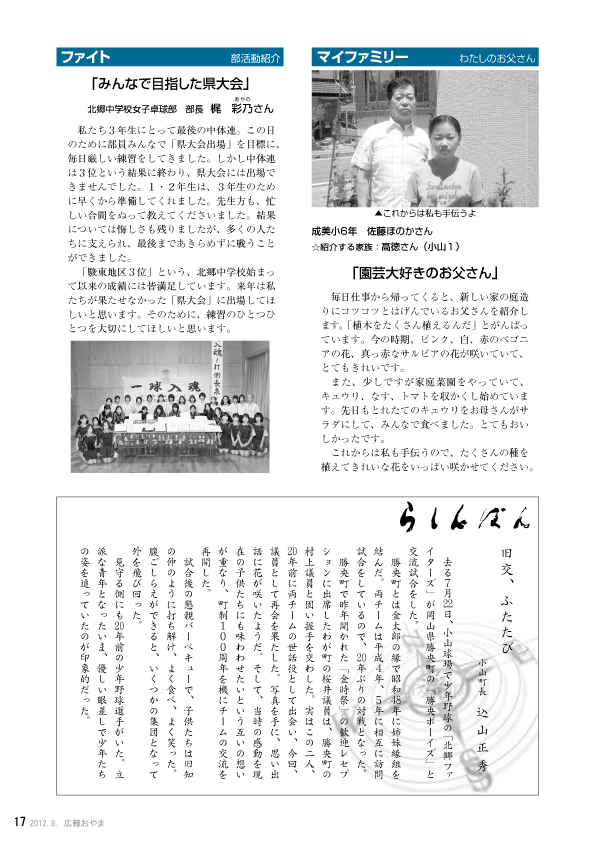 ファイト
部活動紹介
「みんなで目指した県大会」
北郷中学校女子卓球部　部長　梶　彩乃さん
あやの
　私たち３年生にとって最後の中体連。この日
のために部員みんなで「県大会出場」を目標に、
毎日厳しい練習をしてきました。しかし中体連
は３位という結果に終わり、県大会には出場で
きませんでした。１・２年生は、３年生のため
に早くから準備してくれました。先生方も、忙
しい合間をぬって教えてくださいました。結果
については悔しさも残りましたが、多くの人た
ちに支えられ、最後まであきらめずに戦うこと
ができました。
　「駿東地区３位」という、北郷中学校始まっ
て以来の成績には皆満足しています。来年は私
たちが果たせなかった「県大会」に出場してほ
しいと思います。そのために、練習のひとつひ
とつを大切にしてほしいと思います。
入魂！打倒長泉
一球入魂
マイファミリー
わたしのお父さん
▲これからは私も手伝うよ
成美小6年　佐藤ほのかさん
☆紹介する家族：高徳さん（小山１）
「園芸大好きのお父さん」
　毎日仕事から帰ってくると、新しい家の庭造
りにコツコツとはげんでいるお父さんを紹介し
ます。「植木をたくさん植えるんだ」とがんばっ
ています。今の時期、ピンク、白、赤のベゴニ
アの花、真っ赤なサルビアの花が咲いていて、
とてもきれいです。
　また、少しですが家庭菜園をやっていて、
キュウリ、なす、トマトを収かくし始めていま
す。先日もとれたてのキュウリをお母さんがサ
ラダにして、みんなで食べました。とてもおい
しかったです。
　これからは私も手伝うので、たくさんの種を
植えてきれいな花をいっぱい咲かせてください。
らしんばん
旧交、ふたたび
小山町長　込山正秀
　去る７月22日、小山球場で少年野球の「北郷ファ
イターズ」が岡山県勝央町の「勝央ボーイズ」と
交流試合をした。
　勝央町とは金太郎の縁で昭和48年に姉妹縁組を
結んだ。両チームは平成４年、５年に相互に訪問
試合をしているので、20年ぶりの対戦となった。
　勝央町で昨年開かれた「金時祭」の歓迎レセプ
ションに出席したわが町の桜井議員は、勝央町の
村上議員と固い握手を交わした。実はこの二人、
20年前に両チームの世話役として出会い、今回、
議員として再会を果たした。写真を手に、思い出
話に花が咲いたようだ。そして、当時の感動を現
在の子供たちにも味わわせたいという互いの想い
が重なり、町制１００周年を機にチームの交流を
再開した。
　試合後の懇親バーベキューで、子供たちは旧知
の仲のように打ち解け、よく食べ、よく笑った。
腹ごしらえができると、いくつかの集団となって
外を飛び回った。
　見守る側にも20年前の少年野球選手がいた。立
派な青年となったいま、優しい眼差しで少年たち
の姿を追っていたのが印象的だった。
17 2012. 8.　広報おやま